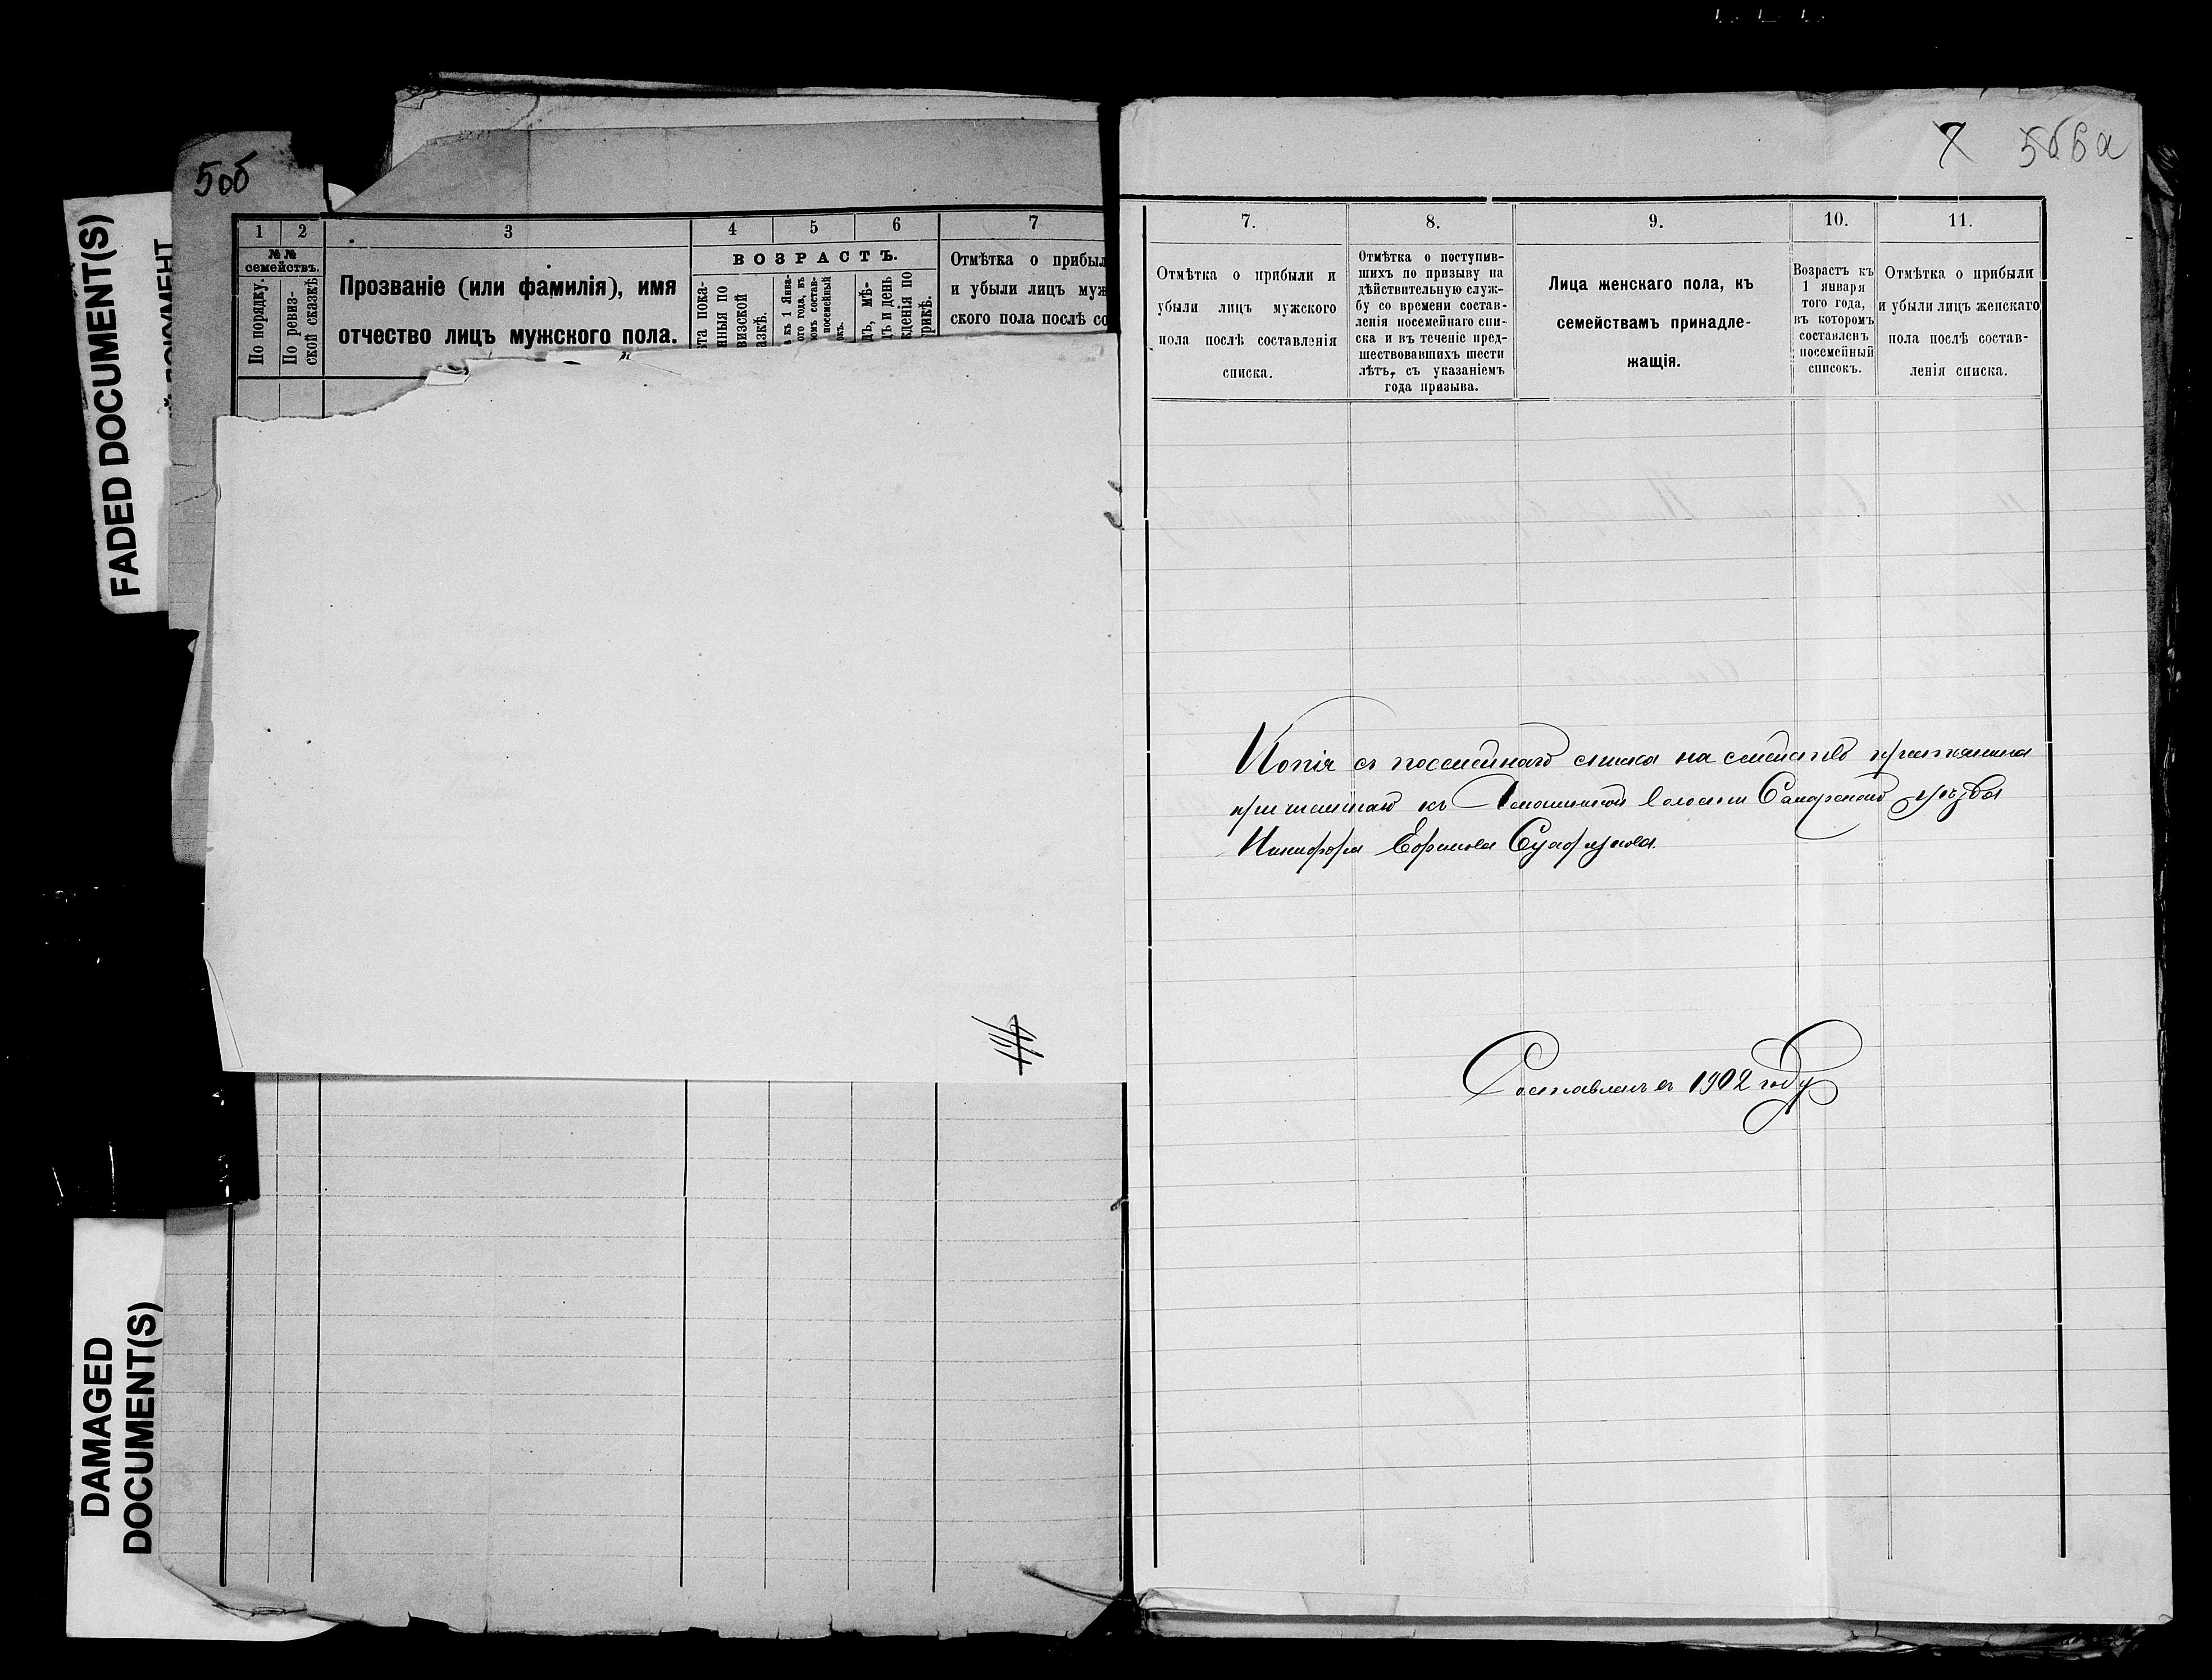 5об
FADED DOCUMENT(S)
DAMAGED
DOCUMENT(S)
1 2 3 4 5 6 7
№№
семействъ.
По порядку.
По ревиз-
ской сказкѣ
Прозваніе (или фамилія), имя
отчество лицъ мужского пола.
ВОЗРАСТЪ.
Отмѣтка о прибыл
и убыли лицъ муж
ского пола послѣ со
7
6а
7. 8. 9. 10. 11.
Отмѣтка о прибыли и
убыли лицъ мужского
пола послѣ составленія
списка.
Отмѣтка о поступив-
шихъ по призыву на
дѣйствительную служ-
бу со времени состав-
ленія посемейнаго спи-
ска и въ теченіе пред-
шествовавшихъ шести
лѣтъ, съ указаніемъ
года призыва.
Лица женскаго пола, къ
семействамъ принадле-
жащія.
Возрастъ къ
1 января
того года,
въ которомъ
составленъ
посемейный
списокъ.
Отмѣтка о прибыли
и убыли лицъ женскаго
пола послѣ состав-
ленія списка.
Копія съ посемейнаго списка на семейство крестьянина
къ волости Самарскаго уѣзда
Никифора Ефимова
Составленъ въ 1902 году